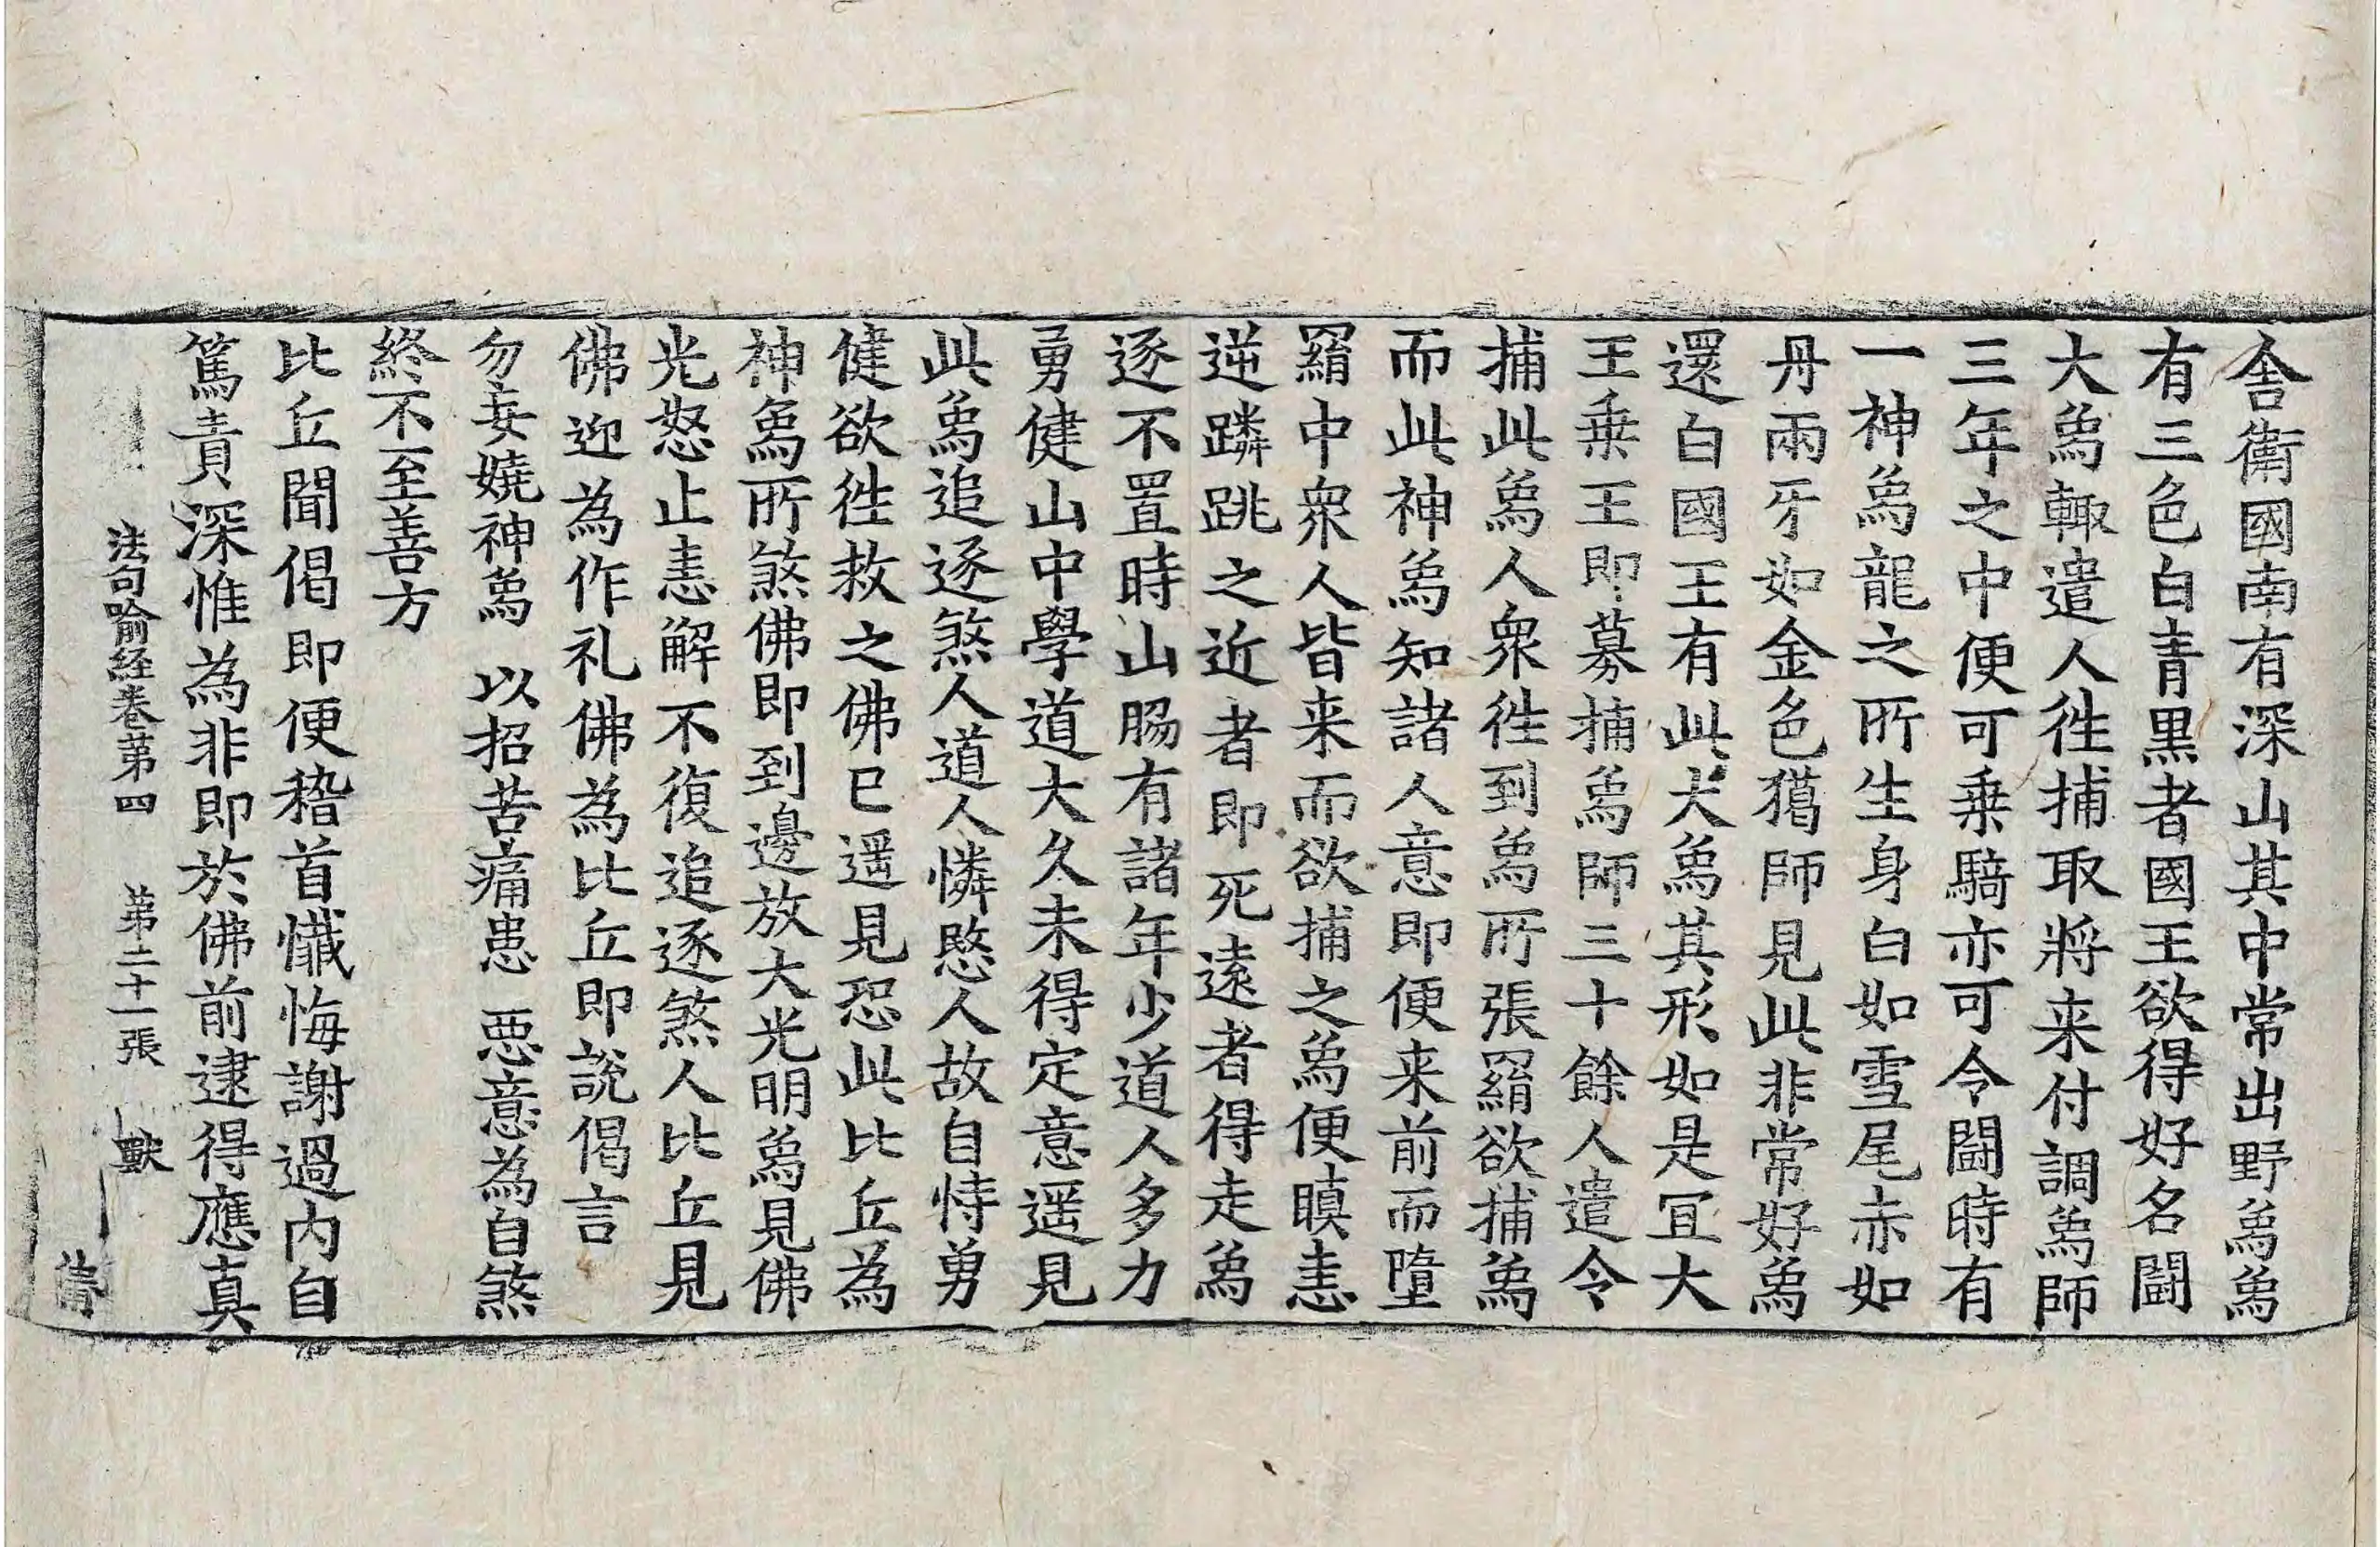 舎衛國南有深山其中常出野爲爲
有三色白青黒者國王欲得好名鬪
大爲輙遣人徃捕取將来付調爲師
三年之中便可乗騎亦可令鬪時有
一神爲龍之所生身白如雪尾赤如
丹兩牙如金色獦師見此非常好爲
還白國王有此犬爲其形如是冝大
王乗王即募捕爲師三十餘人遣令
捕此爲人衆徃到爲所張羂欲捕爲
而此神爲知諸人意即便来前而墮
羂中衆人皆来而欲捕之爲便瞋恚
逆蹸跳之近者即死遠者得走爲
逐不置時山脇有諸年少道人多力
勇健山中學道大久未得定意遥見
此爲追逐煞人道人憐愍人故自恃勇
健欲徃救之佛已遥見恐此比丘為
神爲所煞佛即到邊放大光明爲見佛
光怒止恚解不復追逐煞人比丘見
佛迎為作礼佛為比丘即說偈言
勿妄嬈神爲 以招苦痛患 惡意為自煞
終不至善方
比丘聞偈即便稽首懴悔謝過内自
篤責深惟為非即於佛前逮得應真
法句喻経卷苐四 苐二十一張